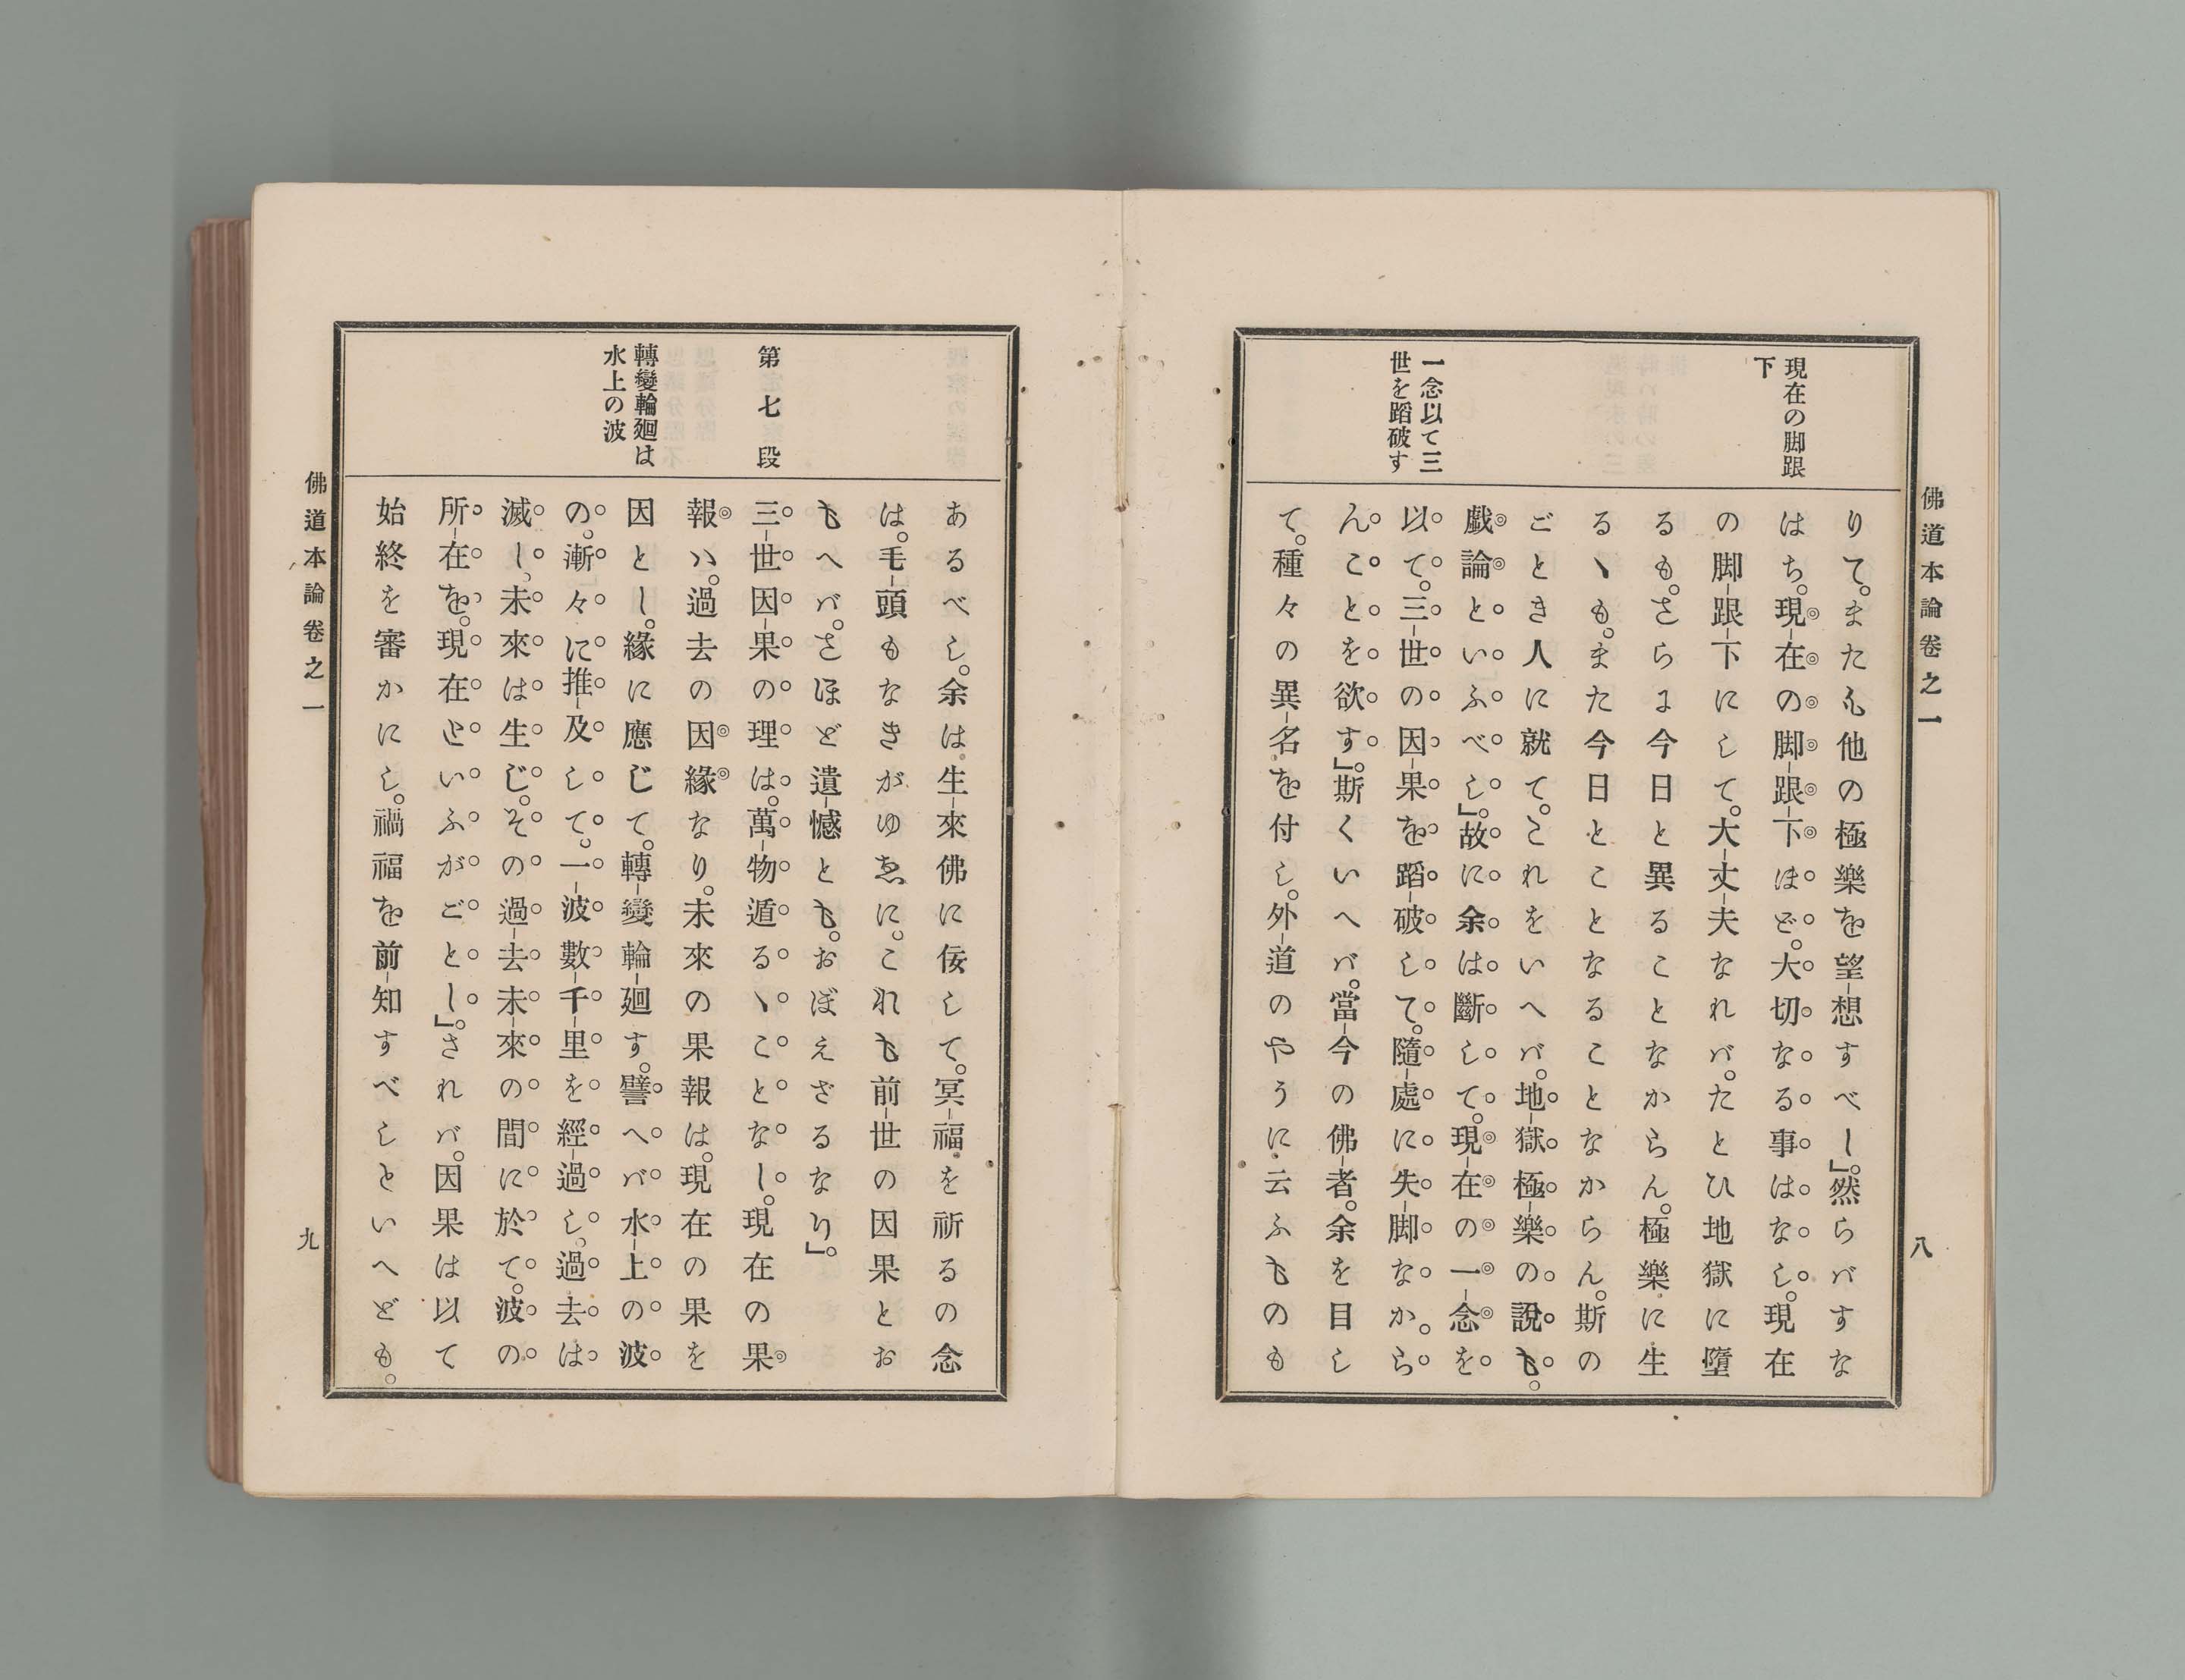 佛道本論卷之一
八
現在の脚跟
下
一念以て三
世を蹈破す
りて。また他の極樂を望想すべし」。然らバすな
はち。現在の脚跟下ほど。大切なる事はなし。現在
の脚跟下にして。大丈夫なれバ。たとひ地獄に墮
るも。さらに今日と異ることなからん。極樂に生
るヽも。また今日とことなることなからん。斯の
ごとき人に就て。これをいへバ。地獄極樂の說も。
戲論といふべし」。故に余は斷して。現在の一念を
以て。三世の因果を蹈破して。隨處に失脚なか。ら
んことを欲す」。斯くいへバ。當今の佛者。余を目し
て。種々の異名を付し。外道のやうに云ふものも
第七段
轉變輪廻は
水上の波
あるべし。余は生來佛に佞して。冥福を祈るの念
は。毛頭もなきがゆゑに。これも前世の因果とお
もへバ。さほど遺憾とも。おぼえざるなり」。
三世因果の理は。萬物遁るヽことなし。現在の果
報ハ。過去の因緣なり。未來の果報は。現在の果を
因とし。緣に應じて。轉變輪廻す。譬へバ水上の波
の。漸々に推及して。一波數千里を經過し。過去は
滅し、未來は生じ。その過去未來の間に於て。波の
所在を。現在といふがごとし」。されバ。因果は以て
始終を審かにし。禍福を前知すべしといへども。
佛道本論卷之一
九